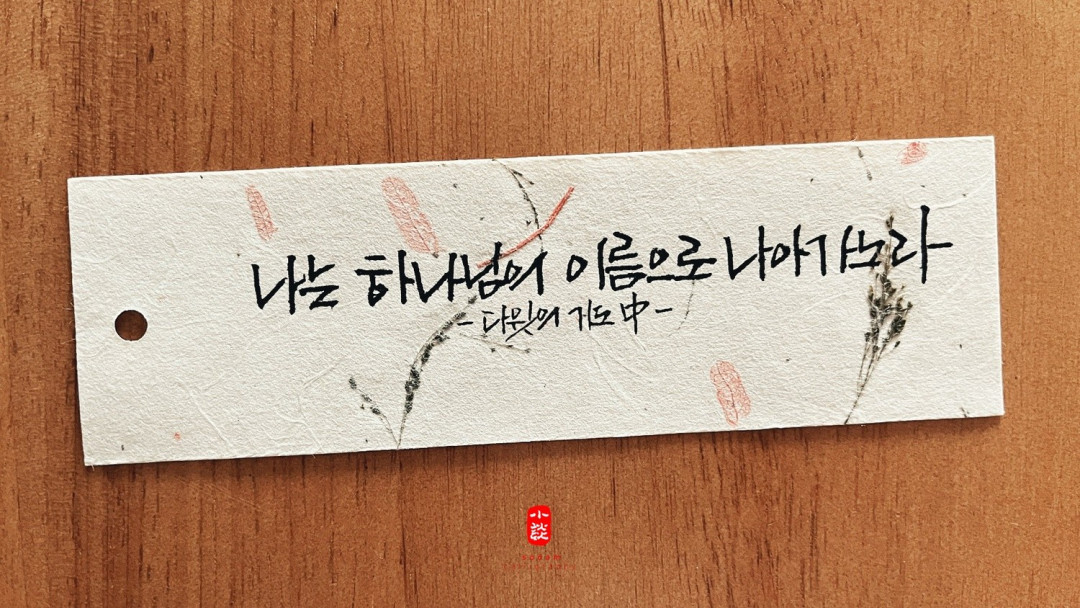 나는 하나님의 이름으로 나아가노라
- 다윗의 기도 中 -
小